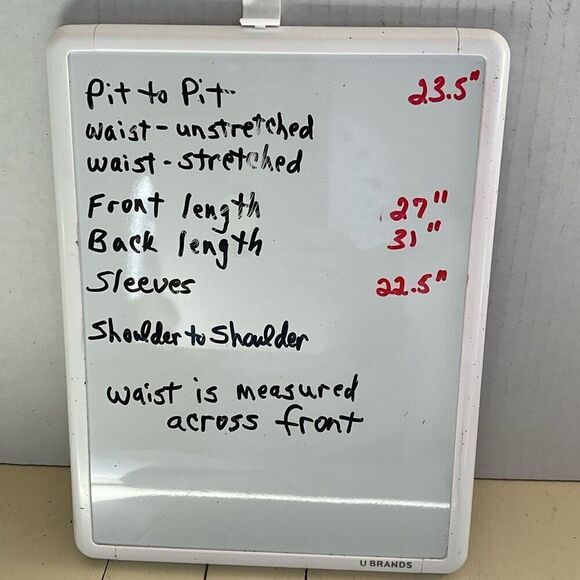 Pit to Pit 23.5"
waist-unstretched
waist-stretched
Front length 27"
Back length 31"
Sleeves 22.5"
Shoulder to Shoulder
waist is measured
across front
U BRANDS